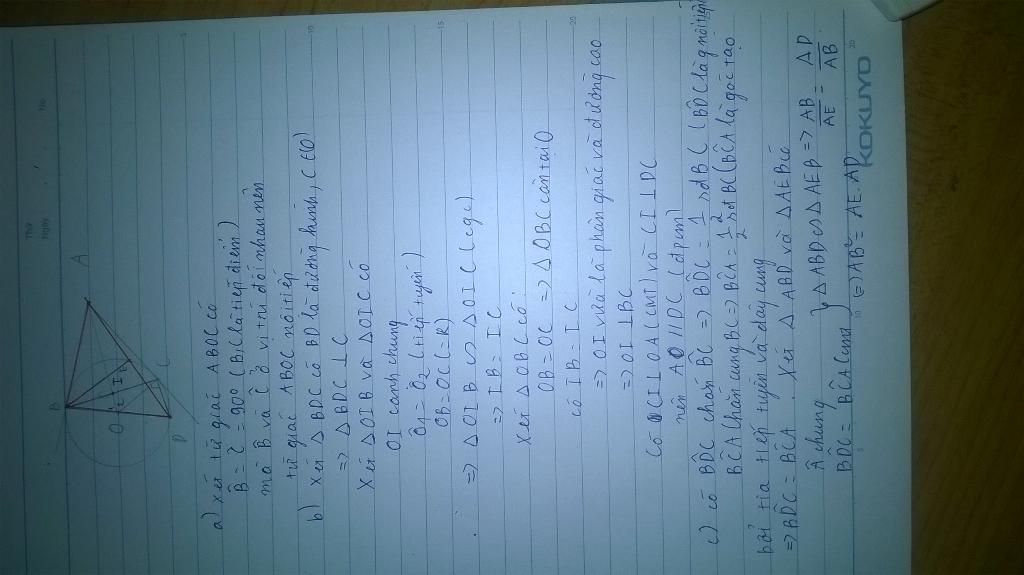 Thứ
Ngày
No.
A
B
O
I
E
C
D
a) xét tứ giác ABOC có
B̂ = Ĉ = 90° (B,C là tiếp điểm)
mà B̂ và Ĉ ở vị trí đối nhau nên
tứ giác ABOC nội tiếp
b) xét △ BDC có BD là đường kính, C ∈(O)
=> △ BDC ⊥ C
Xét △OIB và △OIC có
OI cạnh chung
Ô1 = Ô2 (tiếp tuyến)
OB = OC (=R)
=> △OIB ∽ △OIC (cgc)
=> IB = IC
Xét △OBC có
OB = OC => △OBC cân tại O
có IB = IC
=> OI vừa là phân giác và đường cao
=> OI ⊥ BC
Có CI ⊥ OA (CMT) và CI ⊥ DC
nên AO // DC (đpcm)
c) có BD̂C chắn BC => BD̂C = 1/2 sđ BC (BD̂C là g nội tiếp)
BĈA chắn cung BC => BĈA = 1/2 sđ BC (BĈA là góc tạo
bởi tia tiếp tuyến và dây cung
=> BD̂C = BĈA . Xét △ ABD và △AEB có
Â chung } △ABD ∽ △AEB => AB/AE = AD/AB
BD̂C = BĈA (cmt) (=) AB² = AE.AD
5
10
15
20
5
10
20
KOKUYO